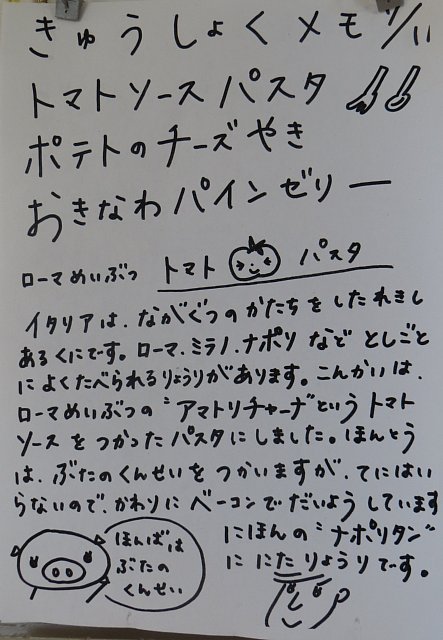 きゅうしょくメモ 7/11
トマトソースパスタ
ポテトのチーズやき
おきなわパインゼリー
ローマめいぶつ トマト パスタ
イタリアは、ながぐつのかたちをしたれきし
あるくにです。ローマ、ミラノ、ナポリなどとしごと
によくたべられるりょうりがあります。こんかいは、
ローマめいぶつの"アマトリチャーナ"というトマト
ソースをつかったパスタにしました。ほんとう
は、ぶたのくんせいをつかいますが、てにはい
らないので、かわりにベーコンでだいようしています
にほんの"ナポリタン"
ににたりょうりです。
ほんばは
ぶたの
くんせい